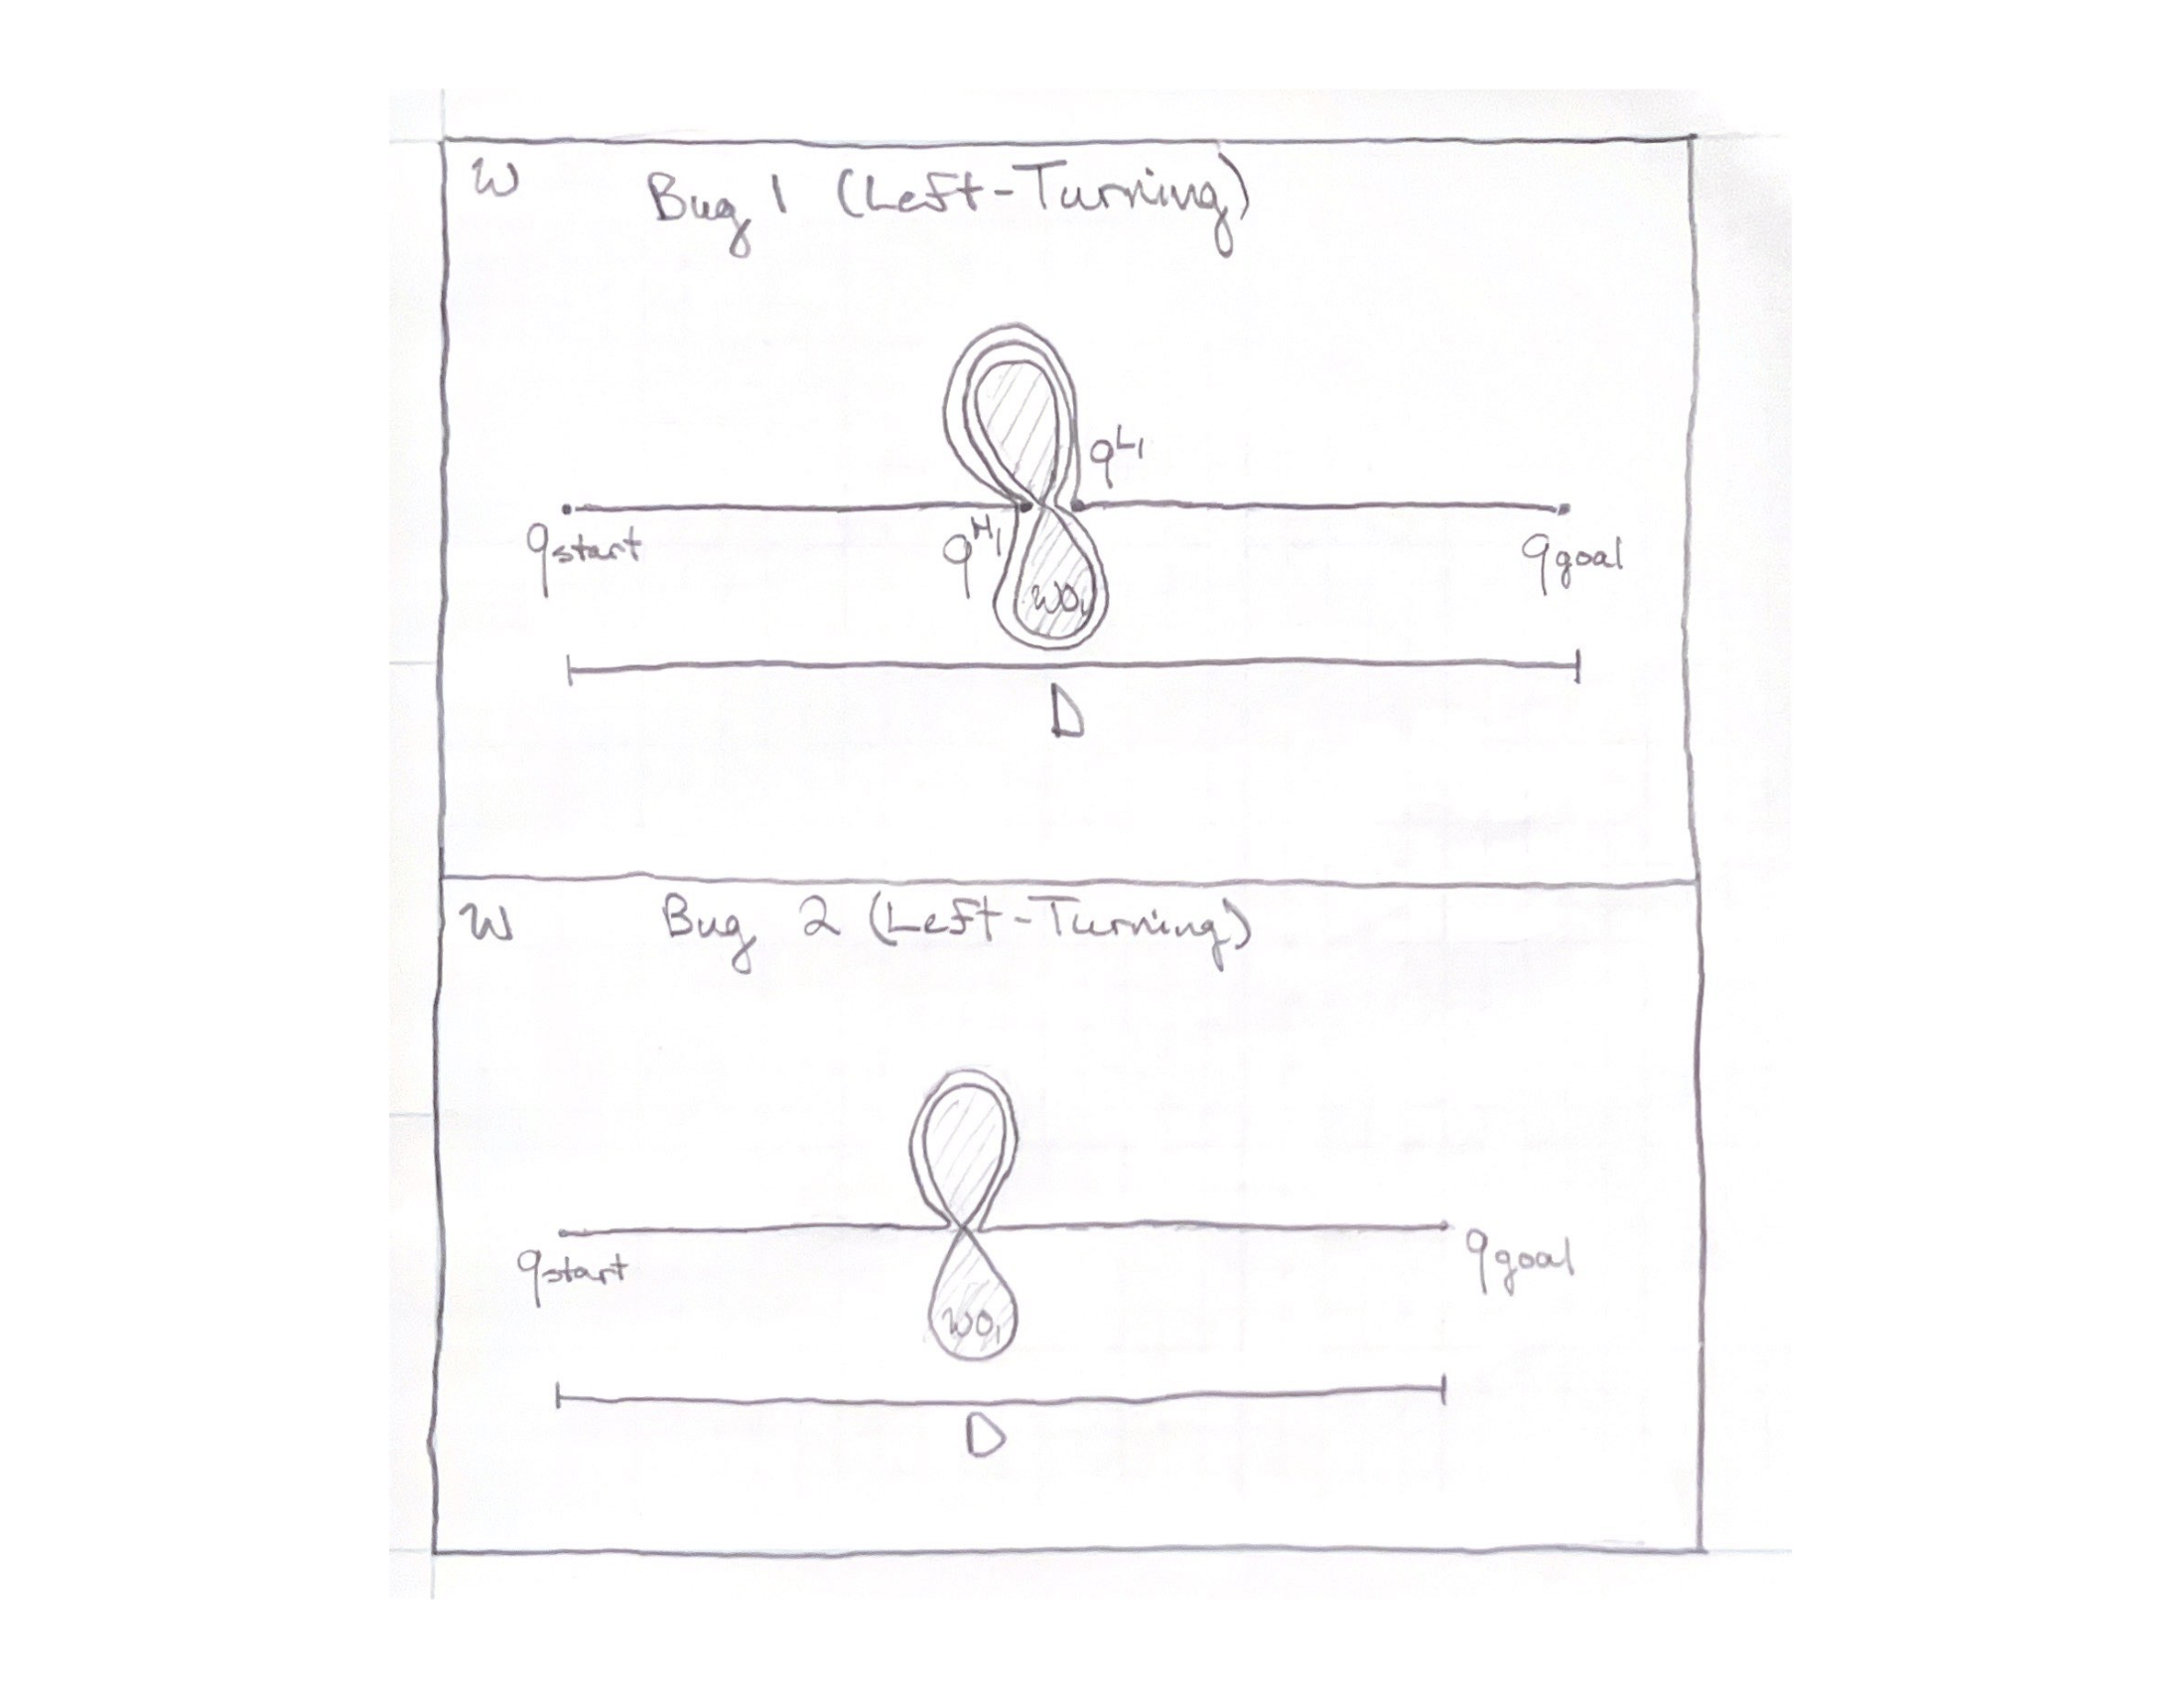 W Bug 1 (Left-Turning)
q^L1
q^H1
qstart
qgoal
WO1
D
W Bug 2 (Left-Turning)
qstart
qgoal
WO1
D